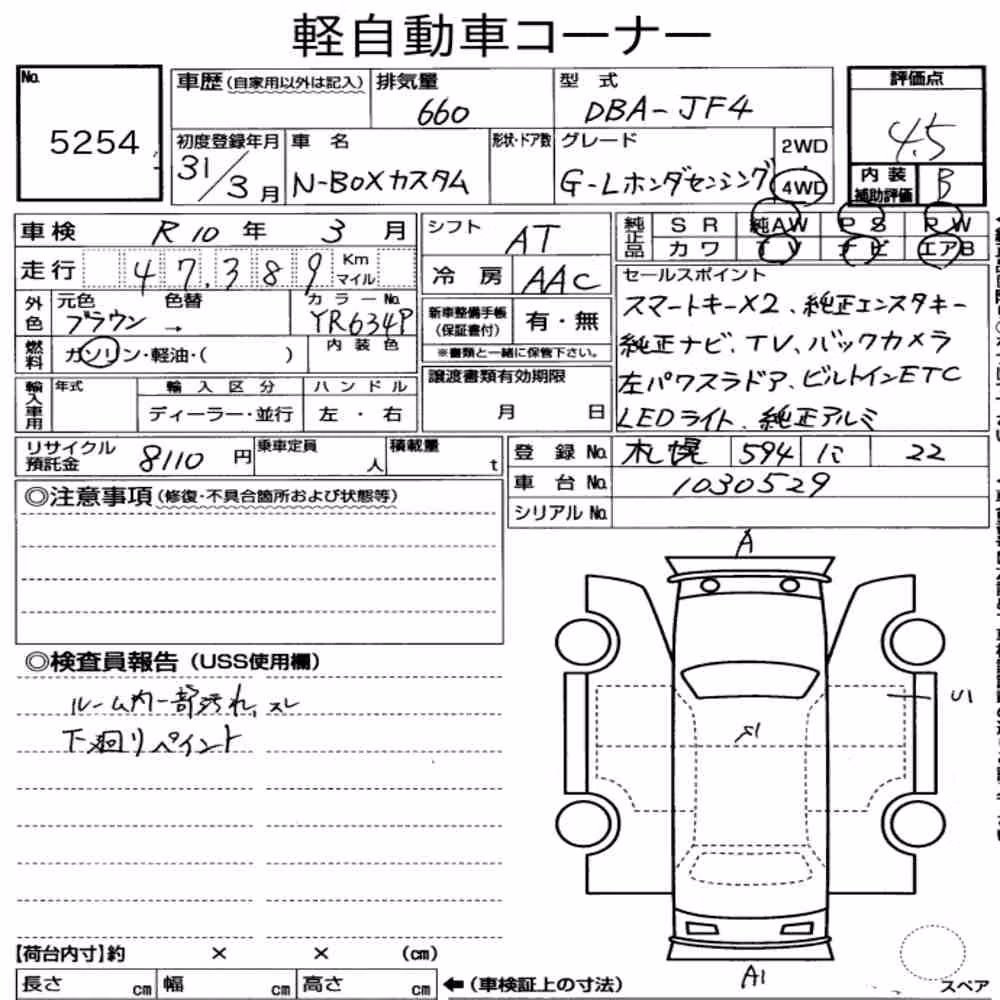 軽自動車コーナー
No. 5254
車歴 (自家用以外は記入)
排気量 660
型式 DBA-JF4
評価点 4.5
初度登録年月 31/3月
車名 N-BOXカスタム
形状・ドア数
グレード G-Lホンダセンシング
2WD
4WD
内装補助評価 B
車検 R10年 3月
走行 47,389 Km マイル
シフト AT
冷房 AAC
純正品 SR 純AW PS PW
カワ TV ナビ エアB
外色 元色 ブラウン → 色替
カラーNo. YR634P
燃料 ガソリン・軽油・( )
内装色
新車整備手帳(保証書付) 有・無
※書類と一緒に保管下さい。
セールスポイント
スマートキー×2、純正エンスタキー
純正ナビ、TV、バックカメラ
左パワスラドア、ビルトインETC
LEDライト、純正アルミ
輸入車用 年式 輸入区分 ハンドル
ディーラー・並行 左・右
譲渡書類有効期限
月 日
リサイクル預託金 8110円
乗車定員 人
積載量 t
登録No. 札幌 594 に 22
車台No. 1030529
シリアルNo.
◎注意事項(修復・不具合箇所および状態等)
◎検査員報告(USS使用欄)
ルーム内一部汚れ、スレ
下廻りペイント
A
U1
A1
【荷台内寸】約 × × (cm)
長さ cm 幅 cm 高さ cm
←(車検証上の寸法)
スペア